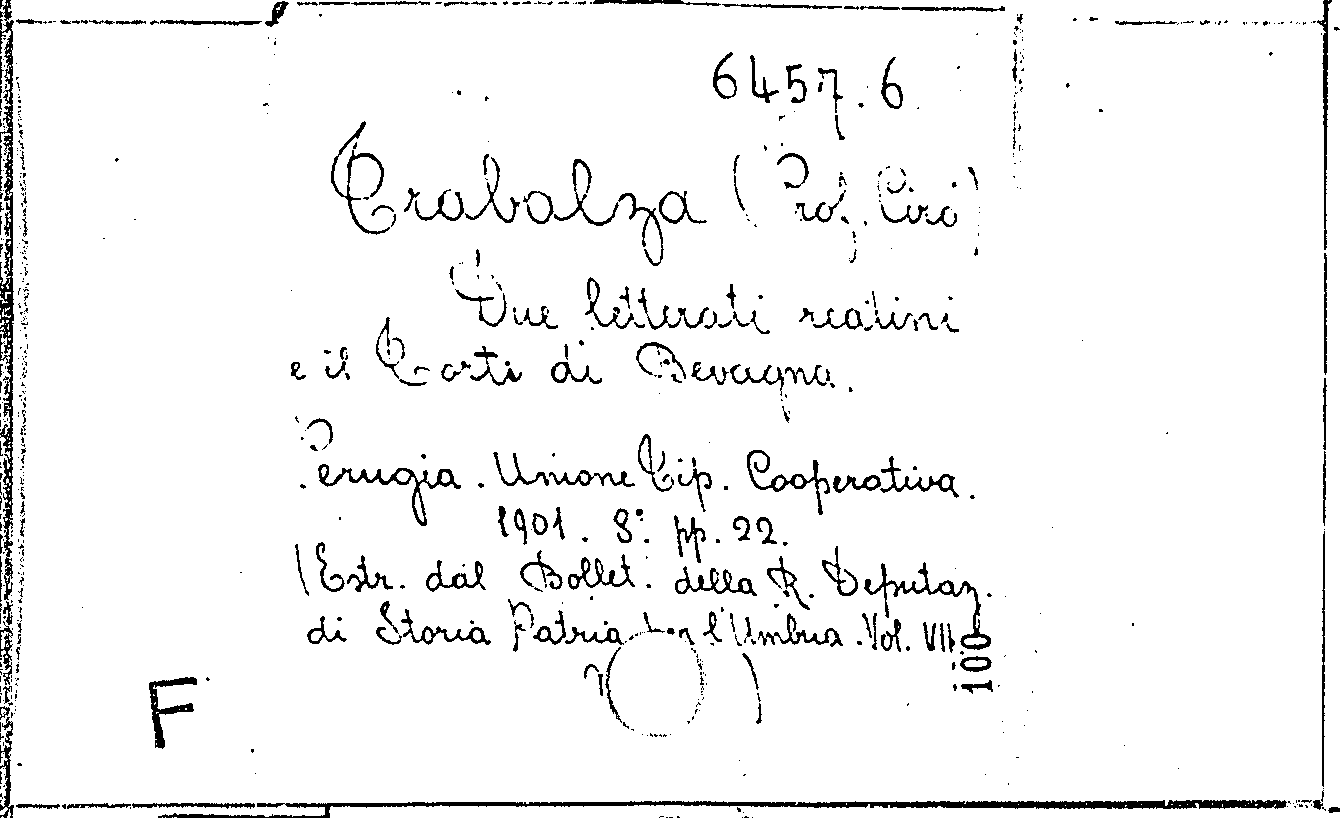 6457.6
Trabalza (Prof. Ciro)
Due letterati reatini
e il Torti di Bevagna.
Perugia. Unione Tip. Cooperativa.
1901. 8°. pp. 22.
(Estr. dal Bollet. della R. Deputaz.
di Storia Patria per l'Umbria. Vol. VII
)
100
F